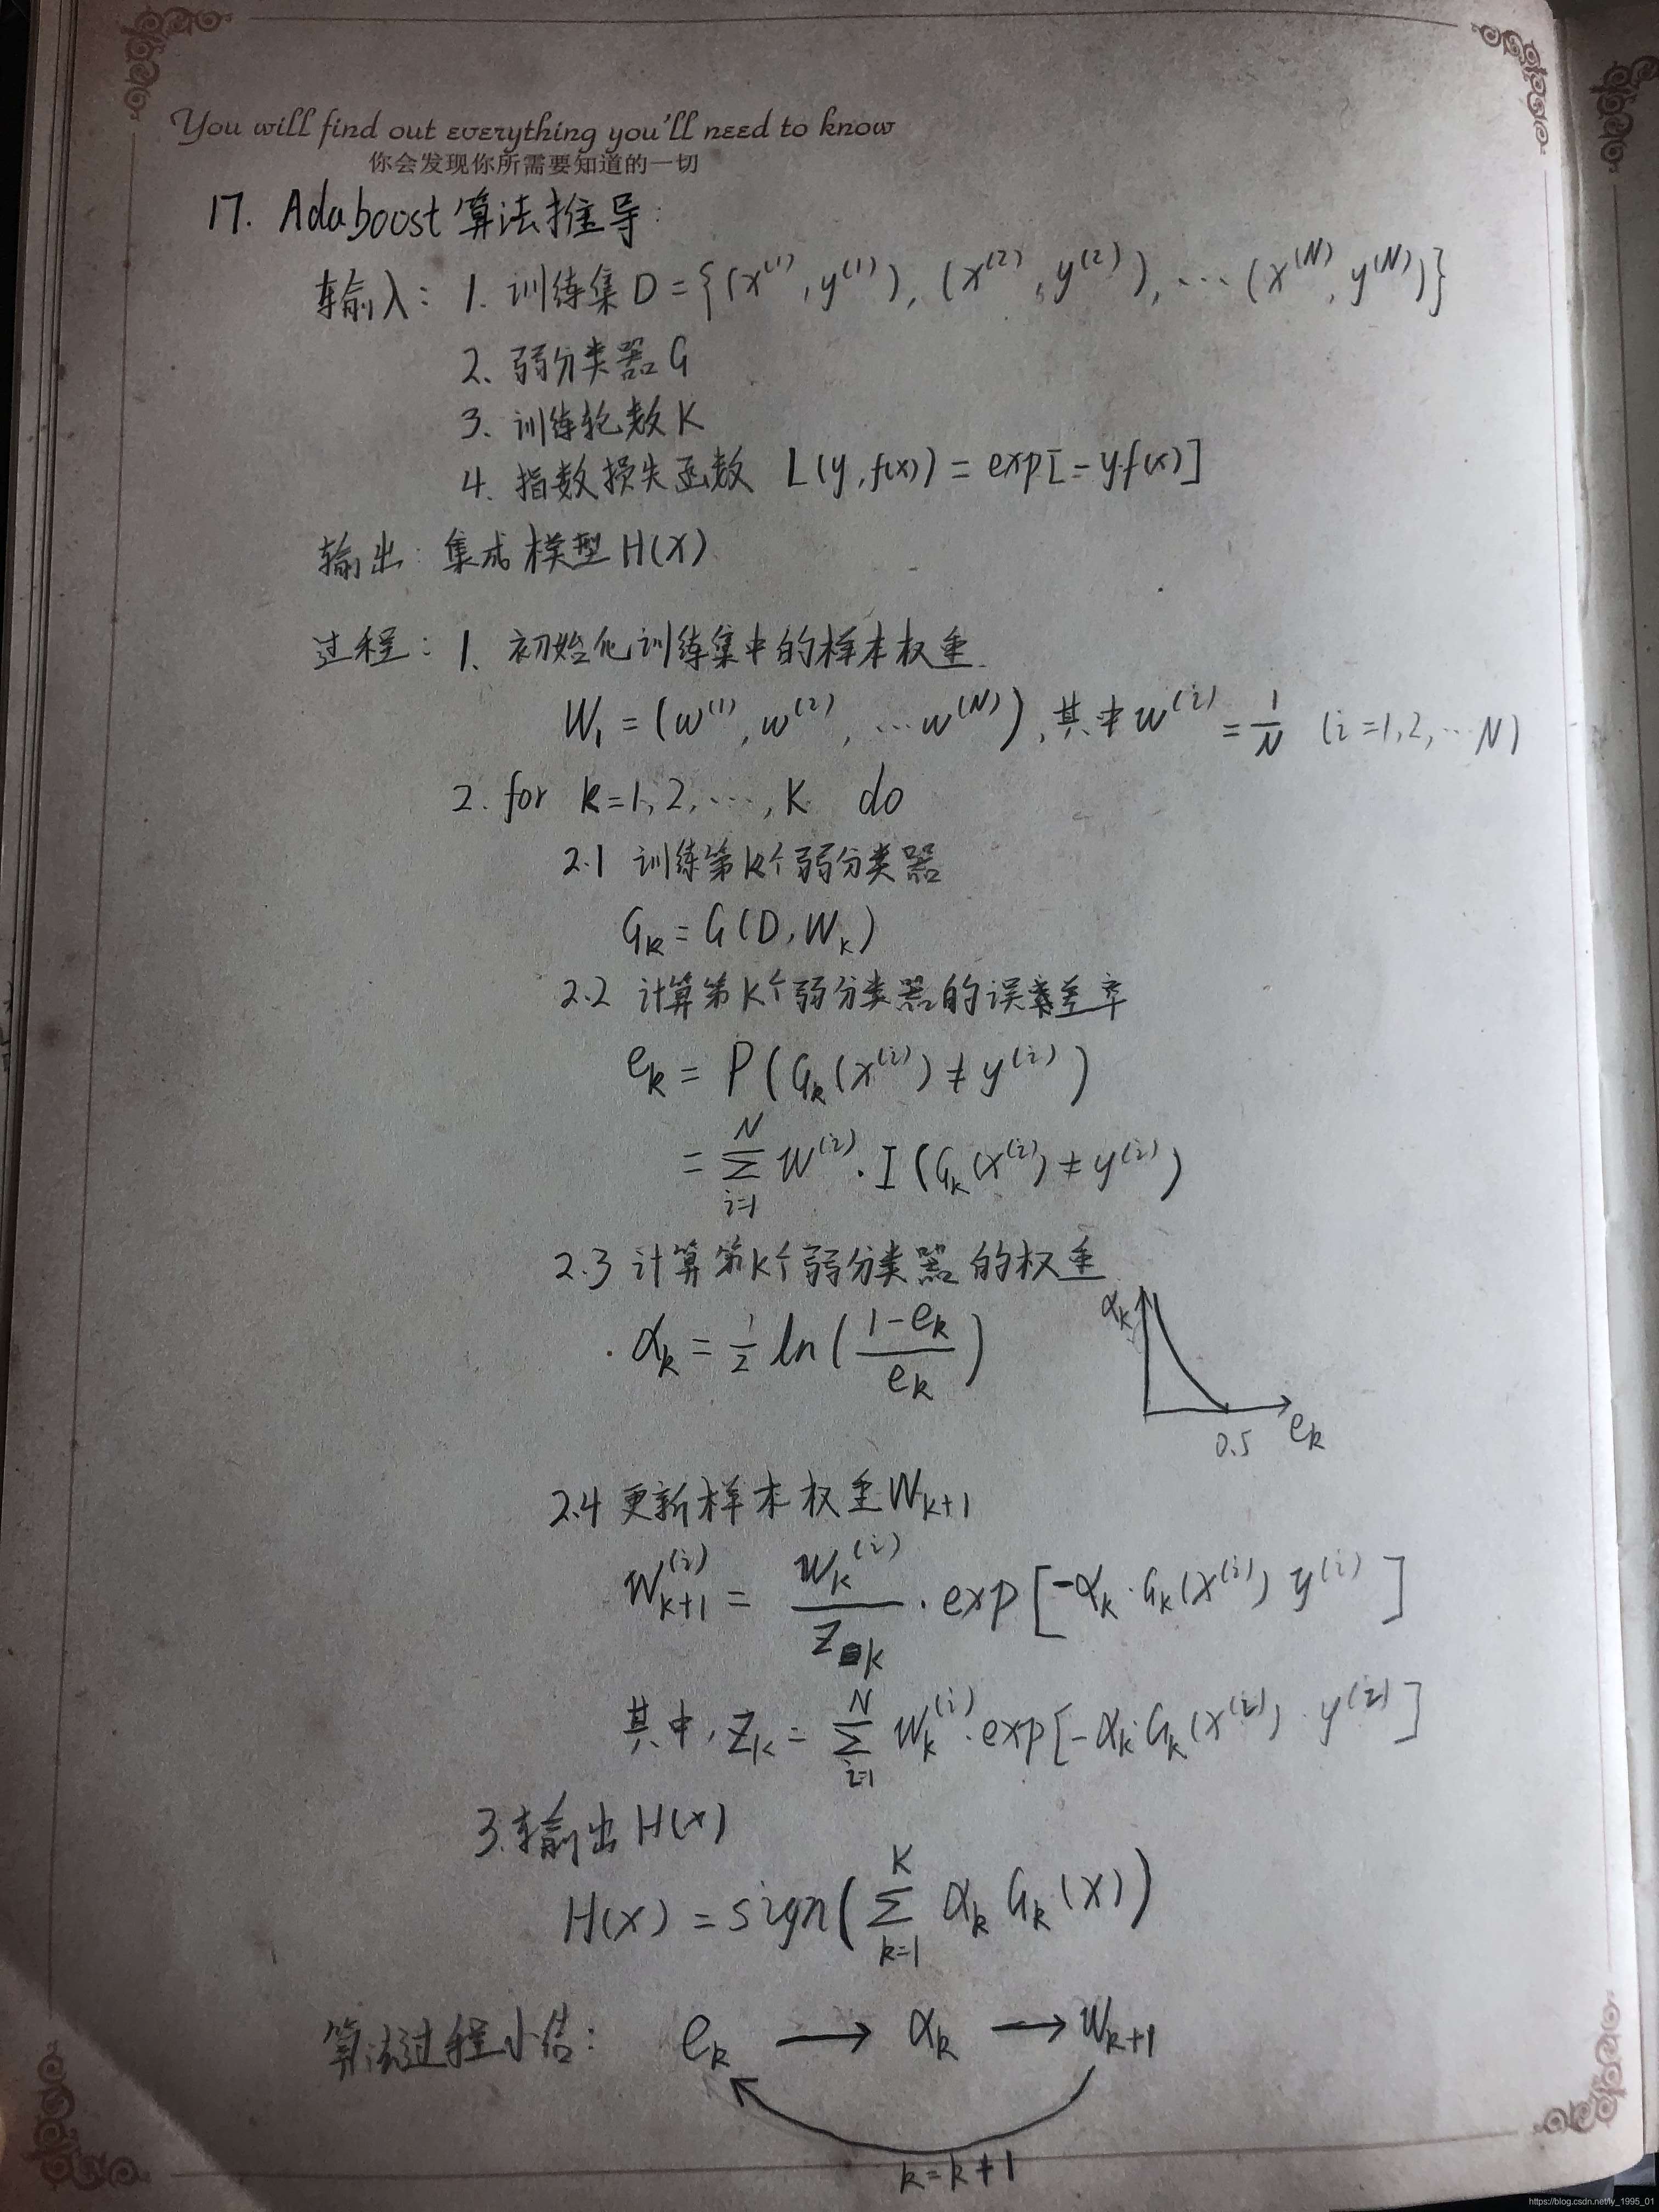 You will find out everything you'll need to know
你会发现你所需要知道的一切
17. Adaboost 算法推导:
输入: 1. 训练集 D = {(x⁽¹⁾, y⁽¹⁾), (x⁽²⁾, y⁽²⁾), ⋯ (x⁽ᴺ⁾, y⁽ᴺ⁾)}
2、弱分类器 G
3、训练轮数 K
4. 指数损失函数 L(y, f(x)) = exp[-yf(x)]
输出: 集成模型 H(X)
过程: 1、初始化训练集中的样本权重.
W₁ = (w⁽¹⁾, w⁽²⁾, ⋯ w⁽ᴺ⁾), 其中 w⁽ⁱ⁾ = 1/N (i=1,2,⋯N)
2. for k=1,2,⋯,K do
2.1 训练第k个弱分类器
G_k = G(D, W_k)
2.2 计算第k个弱分类器的误差率
e_k = P(G_k(x⁽ⁱ⁾) ≠ y⁽ⁱ⁾)
= ∑_{i=1}^{N} w⁽ⁱ⁾ · I(G_k(x⁽ⁱ⁾) ≠ y⁽ⁱ⁾)
2.3 计算第k个弱分类器的权重
α_k = 1/2 ln((1-e_k)/e_k)
α_k
0.5
e_k
2.4 更新样本权重 W_{k+1}
w_{k+1}⁽ⁱ⁾ = w_k⁽ⁱ⁾/Z_k · exp[-α_k · G_k(x⁽ⁱ⁾) y⁽ⁱ⁾]
其中, Z_k = ∑_{i=1}^{N} w_k⁽ⁱ⁾ · exp[-α_k · G_k(x⁽ⁱ⁾) · y⁽ⁱ⁾]
3. 输出 H(x)
H(x) = sign(∑_{k=1}^{K} α_k G_k(x))
算法过程小结: e_k → α_k → w_{k+1}
k=k+1
https://blog.csdn.net/ly_1995_01